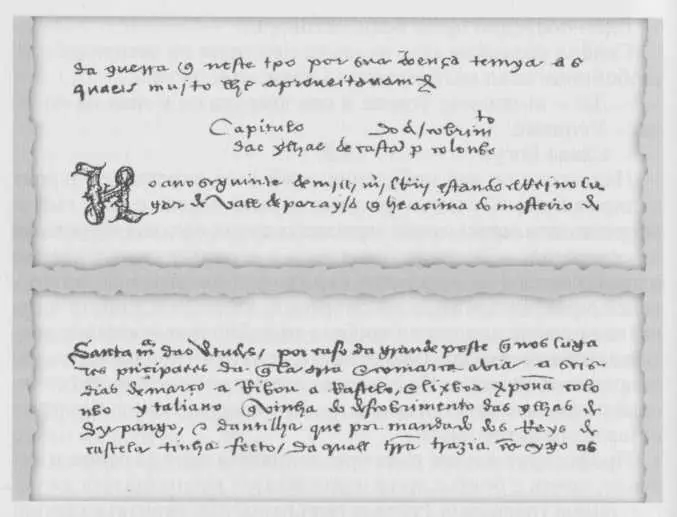 da guerra q̃ neste tpo por sua doença temya as
quaees mujto lhe aproueitauam
Capitulo Do d̃scobrimto
das ylhas de castela p colonbo
No ano seguinte de mill estando elRei no lu
gar de Valle de parayso q̃ he acima do mosteiro de
Santa mª das Vtudes, por caso da grande peste q̃ nos luga
res principaaes da q̃lla comarca avia a seis
dias de março aRibou a Rastelo, e lixboa xpouã colo
nbo ytaliano q̃ vinha do descobrimento das ylhas de
Cypango, e dantilha que por mandado dos Reys de
castela tinha fecto, da quall trra trazia cõsygo as